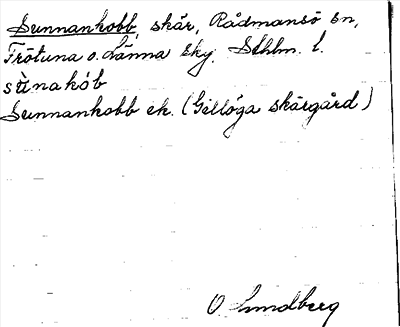 Sunnankobb, skär, Rådmansö sn,
Frötuna o. Länna sky. Sthlm. l.
sùnakób
Sunnankobb ek. (Gillöga skärgård)
O. Lundberg